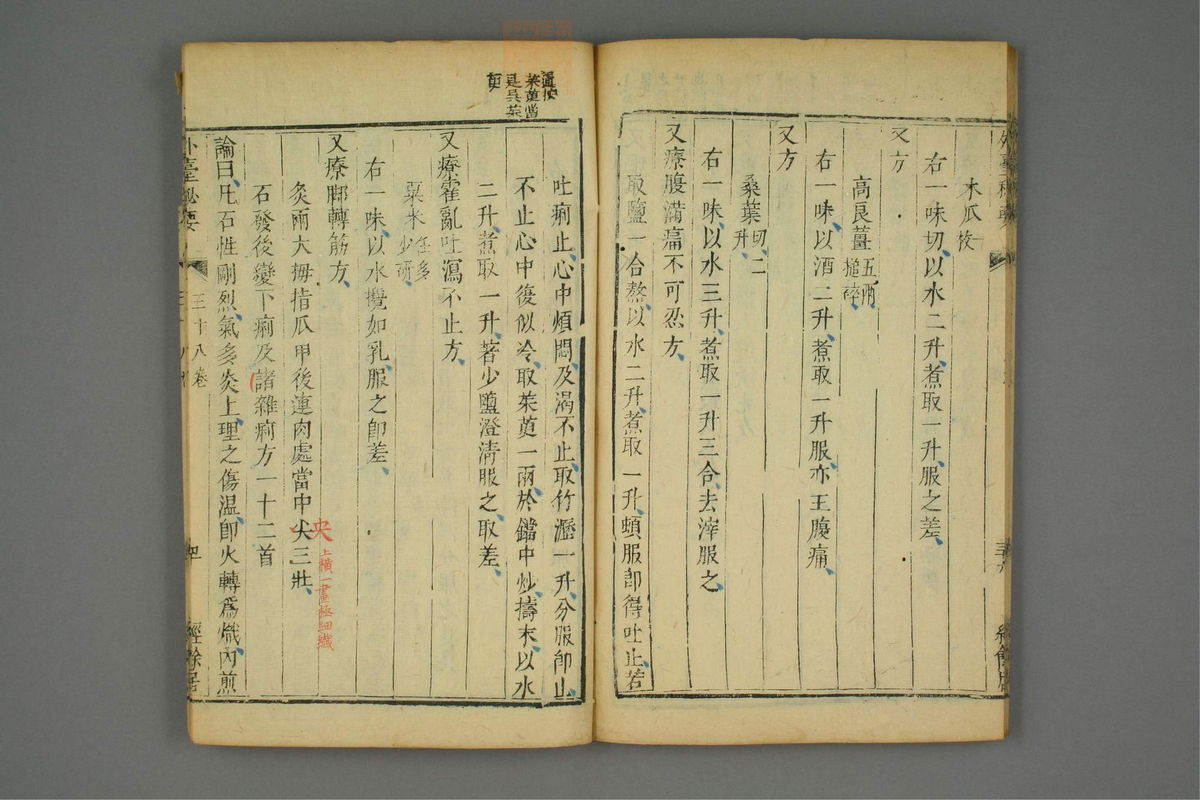 木瓜枚
右一味切以水二升煮取一升服之差
又方
高良薑五兩搥碎
右一味以酒二升煮取一升服亦王腹痛
又方
桑葉切二升
右一味以水三升煮取一升三合去滓服之
又療腹滿痛不可忍方
取鹽一合熬以水二升煮取一升頓服卽得吐止若
衍按茱萸當是吳茱萸
吐痢止心中煩悶及渴不止取竹瀝一升分服卽止
不止心中復似冷取茱萸一兩於鐺中炒擣末以水
二升煮取一升著少鹽澄清服之取差
又療霍亂吐瀉不止方
粟米任多少研
右一味以水攪如乳服之卽差
又療腳轉筋方
灸兩大拇指爪甲後連肉處當中尖三壯
央
上橫一畫極細纖
石發後變下痢及諸雜痢方一十二首
論曰凡石性剛烈氣多炎上理之傷溫卽火轉爲熾內煎
外臺秘要
三十八卷
經餘居